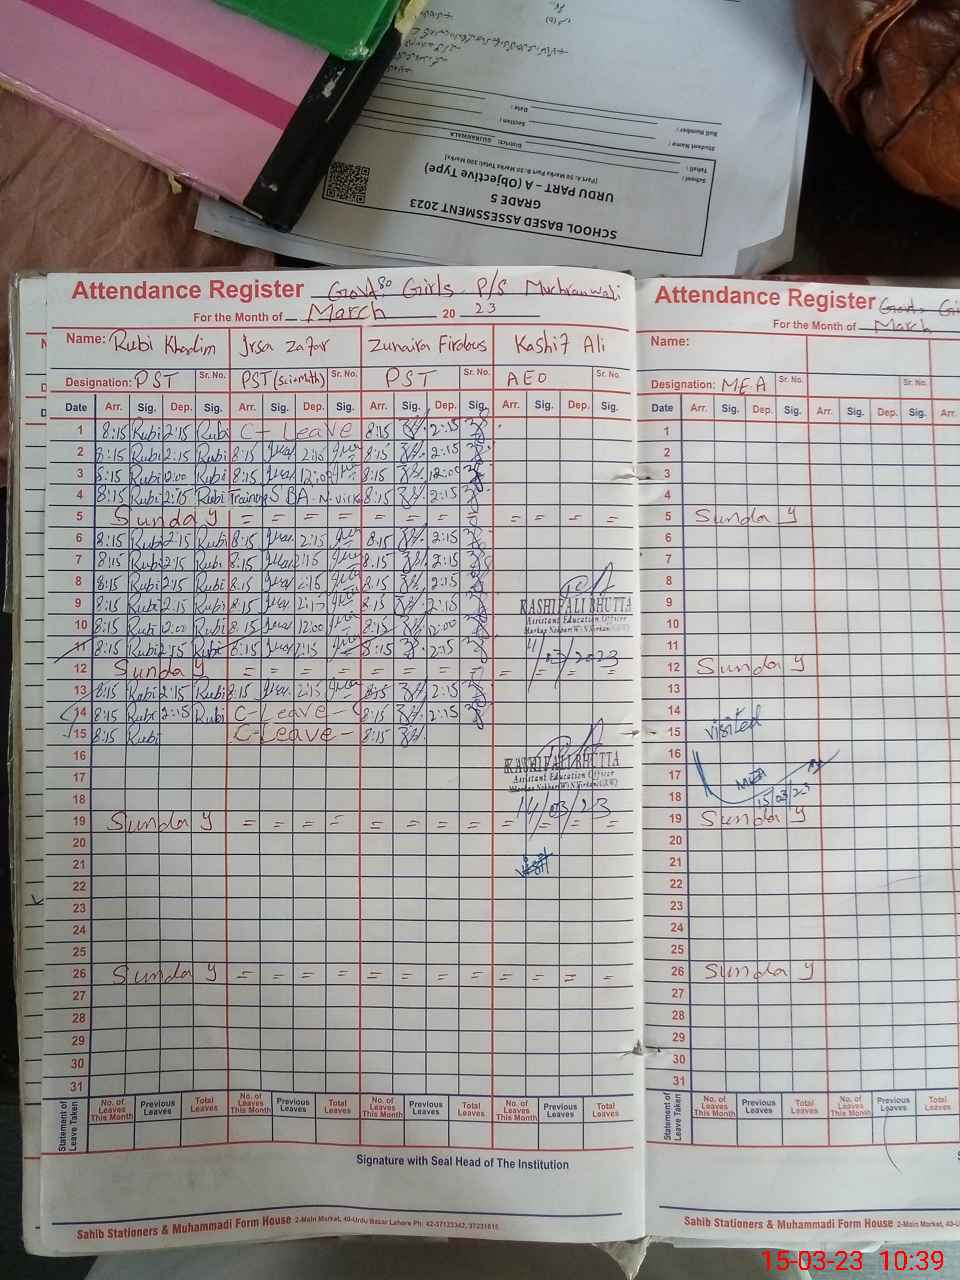 SCHOOL BASED ASSESSMENT 2023
GRADE 5
URDU PART – A (Objective Type)
[Part A: 50 Marks Part B: 50 Marks Total: 100 Marks]
School :
Tehsil : District: GUJRANWALA
Student Name :
Roll Number : Section :
Date :
Attendance Register Govt. Girls P/S
For the Month of March 2023
Name: Rubi Khadim Irsa Zafar Zunaira Firdous Kashif Ali
Designation: PST Sr. No. PST (Sci-Math) Sr. No. PST Sr. No. AEO Sr. No.
Date Arr. Sig. Dep. Sig. Arr. Sig. Dep. Sig. Arr. Sig. Dep. Sig. Arr. Sig. Dep. Sig.
1 8:15 Rubi 2:15 Rubi C- Leave 8:15 2:15
2 8:15 Rubi 2:15 Rubi 8:15 2:15 8:15 2:15
3 8:15 Rubi 12:00 Rubi 8:15 12:00 8:15 12:00
4 8:15 Rubi 2:15 Rubi Training SBA - N. Virkan 8:15 2:15
5 Sunday = = = = = = = = = = = =
6 8:15 Rubi 2:15 Rubi 8:15 2:15 8:15 2:15
7 8:15 Rubi 2:15 Rubi 8:15 2:15 8:15 2:15
8 8:15 Rubi 2:15 Rubi 8:15 2:15 8:15 2:15
9 8:15 Rubi 2:15 Rubi 8:15 2:15 8:15 2:15
10 8:15 Rubi 12:00 Rubi 8:15 12:00 8:15 12:00
11 8:15 Rubi 2:15 Rubi 8:15 2:15 8:15 2:15
12 Sunday = = = = = = = = = = = =
13 8:15 Rubi 2:15 Rubi 8:15 2:15 8:15 2:15
14 8:15 Rubi 2:15 Rubi C-Leave - 8:15 2:15
15 8:15 Rubi C-Leave - 8:15
16
17
18
19 Sunday = = = = = = = = = = = =
20
21
22
23
24
25
26 Sunday = = = = = = = = = = = =
27
28
29
30
31
KASHIF ALI BHUTTA
Assistant Education Officer
11/03/2023
KASHIF ALI BHUTTA
Assistant Education Officer
14/03/23
visit
Statement of Leave Taken
No. of Leaves This Month Previous Leaves Total Leaves No. of Leaves This Month Previous Leaves Total Leaves No. of Leaves This Month Previous Leaves Total Leaves No. of Leaves This Month Previous Leaves Total Leaves
Signature with Seal Head of The Institution
Sahib Stationers & Muhammadi Form House 2-Main Market, 40-Urdu Bazar Lahore Ph: 42-37123342, 37231615
Attendance Register Govt. Gi
For the Month of March
Name:
Designation: MEA Sr. No. Sr. No.
Date Arr. Sig. Dep. Sig. Arr. Sig. Dep. Sig. Arr.
1
2
3
4
5 Sunday
6
7
8
9
10
11
12 Sunday
13
14
15
16
17
18
19 Sunday
20
21
22
23
24
25
26 Sunday
27
28
29
30
31
visited
MEA
15/03/23
Statement of Leave Taken
No. of Leaves This Month Previous Leaves Total Leaves No. of Leaves This Month Previous Leaves Total Leaves
Sahib Stationers & Muhammadi Form House 2-Main Market, 40-U
15-03-23 10:39